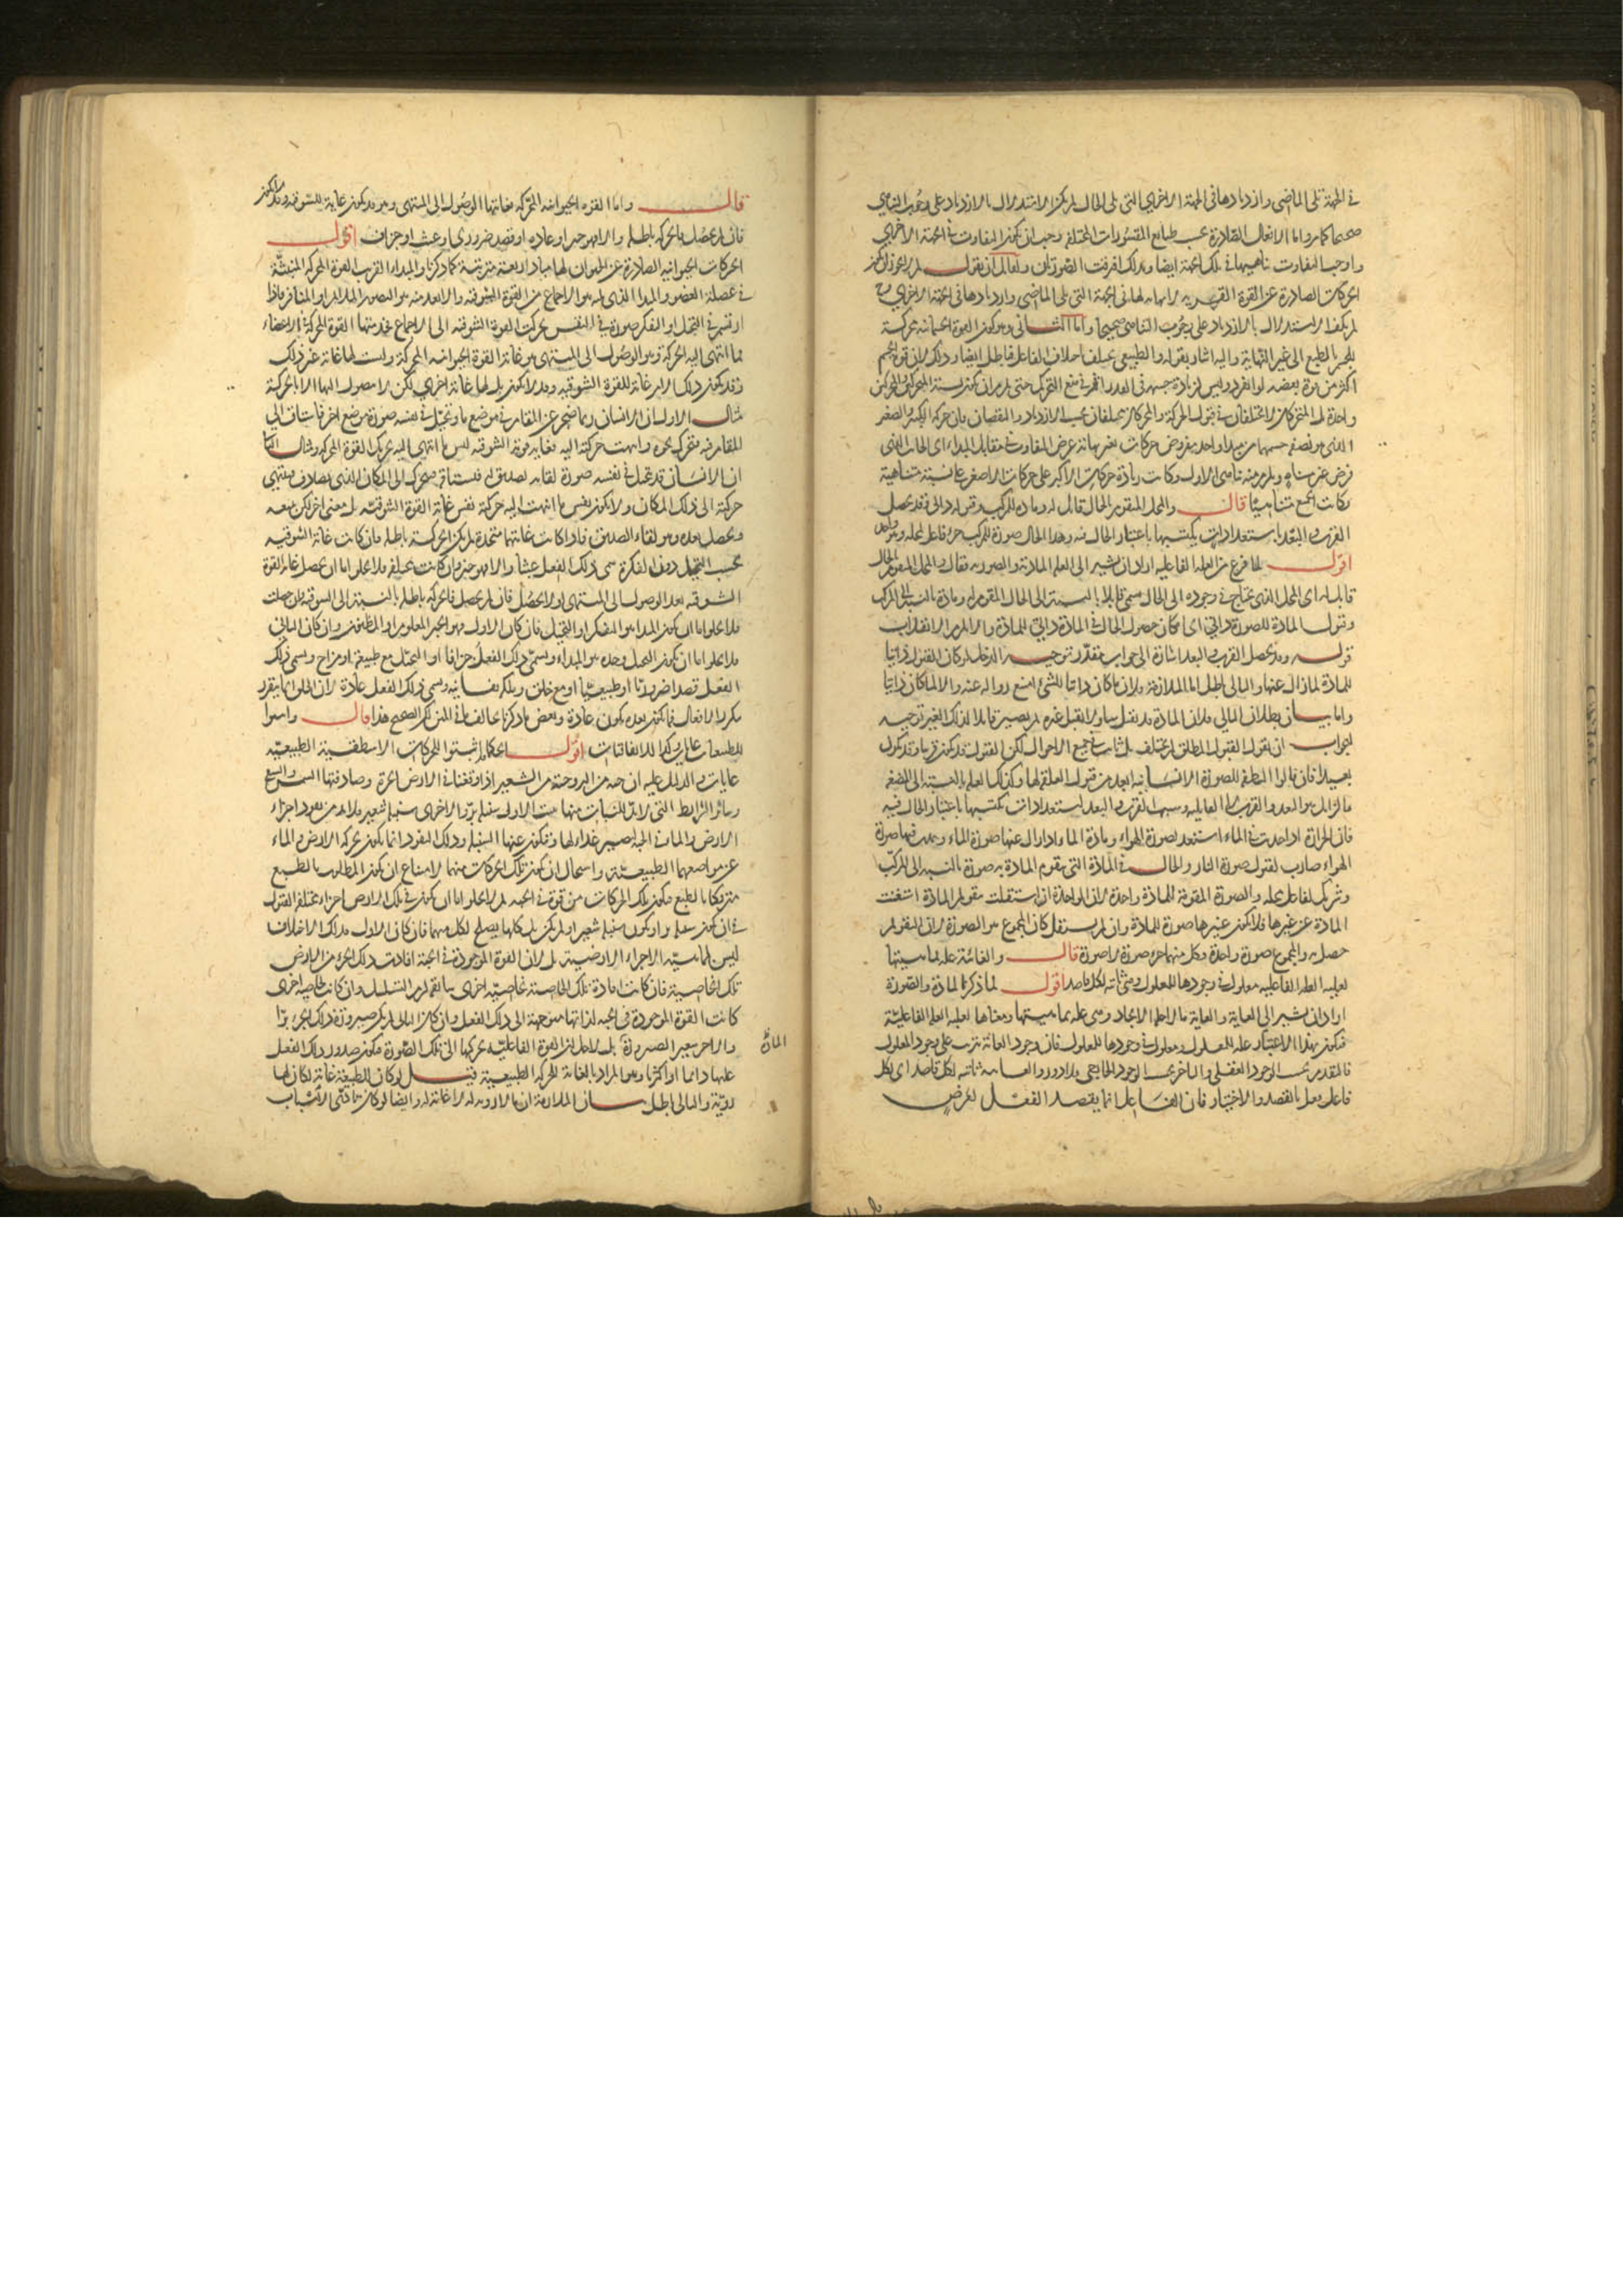 في الجهة تلى الماضى وازديادها فى الجهة الاخرى التى تلى الحال لم يكن الاستدلال بالازدياد على وجوب التناهي
صحيحا كما مر واما الافعال الصادرة بحسب طبايع المقسورات المختلفة وجب ان يكون التفاوت فى الجهة الاخرى
واوجب التفاوت تناهيها فى تلك الجهة ايضا وبذلك افترقت الصورتان ولقائل ان يقول لم لا يجوز ان يكون
الحركات الصادرة عن القوة القسرية لا نهاية لها فى الجهة التى تلى الماضى وازديادها فى الجهة الاخرى
لم يكن الاستدلال بالازدياد على وجوب التناهى صحيحا واما الثانى وهو كون القوة الجسمانية محركة
بالطبع الى غير النهاية واليه اشار بقوله والطبيعى يختلف باختلاف الفاعل فباطل ايضا وذلك لان قوة الجسم
اكثر من قوة بعضه لو انفرد وليس زيادة جسمه فى القدر تؤثر فى منع التحريك حتى يلزم ان يكون نسبة المحركين والمتحركين
واحدة بل المتحركان لا يختلفان فى قبول الحركة والمحركان يختلفان بحسب الازدياد والنقصان فان حركة الكبير والصغير
فرض غير متناه ويلزم منه تناهى الاول وكانت زيادة حركات الاكبر على حركات الاصغر على نسبة متناهية
فكانت الجميع متناهيا قال والمحل المتقوم بالحال قابل له ومادة للمركب وقبوله ذاتى وقد يحصل
القرب والبعد باستعدادات يكتسبها باعتبار الحال فيه وهذا الحال صورة للمركب وجزء فاعل لمحله وهو واحد
اقول لما فرغ من العلة الفاعلية اراد ان يشير الى العلة المادية والصورية فقال والمحل المتقوم بالحال
قابل له اى المحل الذى يحتاج فى وجوده الى الحال يسمى قابلا بالنسبة الى الحال المقوم له ومادة بالنسبة الى المركب
وقبول المادة للصورة ذاتى اى امكان حصول الحال فى المادة ذاتى للمادة والا لزم الانقلاب
قوله وقد يحصل القرب والبعد اشارة الى جواب دخل مقدر توجيه الدخل لو كان القبول ذاتيا
للمادة لما زال عنها والتالى باطل اما الملازمة فلان ما كان ذاتيا للشئ امتنع زواله عنه والا لما كان ذاتيا
واما بيان بطلان التالى فلان المادة قد تقبل شيئا ولا تقبل غيره ثم يصير قابلا لذلك الغير توجيه
الجواب ان نقول القبول المطلق لم يختلف بل ثابت فى جميع الاحوال لكن القبول قد يكون قريبا وقد يكون
بعيدا فان قالوا النطفة للصورة الانسانية ابعد من قبول العلقة لها وكذلك العلقة بالنسبة الى المضغة
فالزائل هو البعد والقرب لا القابلية وسبب القرب والبعد استعدادات تكتسبها باعتبار الحال فيه
فان الحرارة اذا حدثت فى الماء استعد لصورة الهواء ومادة الماء اذا زال عنها صورة الماء وحدثت فيها صورة
الهواء صارت لقبول صورة النار والحال فى المادة التى يقوم المادة به صورة بالنسبة الى المركب
وشريك لفاعل محله والصورة المقومة للمادة واحدة لان الواحدة ان استقلت بتقويم المادة استغنت
المادة عن غيرها فلا يكون غيرها صورة للمادة وان لم يستقل كان المجموع هو الصورة لان التقويم
حصل به والمجموع صورة واحدة وكل منهما جزء صورة لا صورة قال والغائية علة بماهيتها
لعلية العلة الفاعلية معلولة فى وجودها للمعلول وهى ثابتة لكل قاصد اقول لما ذكر المادة والصورة
اراد ان يشير الى الغاية والغاية ما لاجله الايجاد وهى علة بماهيتها ومعناها لعلية العلة الفاعلية
فيكون بهذا الاعتبار علة للمعلول ومعلولة فى وجودها للمعلول فان وجود الغاية يترتب على وجود المعلول
فالمتقدم بحسب الوجود العقلى والتاخر بحسب الوجود الخارجى فلا دور والغاية ثابتة لكل قاصد اى لكل
فاعل يفعل بالقصد والاختيار فان الفاعل انما يقصد الفعل لغرض
قال واما القوة الحيوانية المحركة فغايتها الوصول الى المنتهى وهو قد يكون غاية للشوقية وقد لا يكون
فان لم يحصل فالحركة باطلة والا فهو خير او عادة او قصد ضرورى او عبث او جزاف اقول
الحركات الحيوانية الصادرة عن الحيوان لها مباد اربعة مترتبة كما ذكرنا والمبدا القريب القوة المحركة المنبثة
فى عضلة العضو والمبدا الذى يليه هو الاجماع من القوة الشوقية والابعد منه هو التصور الملائم او المنافر فاذا
ارتسم فى التخيل او التفكر صورة فى النفس تحركت القوة الشوقية الى الاجماع فخدمتها القوة المحركة فى الاعضاء
فما انتهى اليه الحركة وهو الوصول الى المنتهى هو غاية القوة الحيوانية المحركة وليست لها غاية غير ذلك
وقد يكون ذلك الامر غاية للقوة الشوقية وقد لا يكون بل لها غاية اخرى لكن لا تصول اليها الا بالحركة
مثال الاول ان الانسان ربما ضجر عن المقام فى موضع ما وتخيل فى نفسه صورة موضع اخر فاشتاق الى
المقام فيه فتحرك نحوه وانتهت حركته اليه فغاية قوته الشوقية نفس ما انتهى اليه تحريك القوة المحركة ومثال الثانى
ان الانسان قد يتخيل فى نفسه صورة لقائه لصديق له فيشتاقه فيتحرك الى المكان الذى يصادف فينتهى
حركته الى ذلك المكان ولا يكون نفس ما انتهت اليه حركته نفس غاية القوة الشوقية بل معنى اخر لكن يتبعه
ويحصل بعده وهو لقاء الصديق فاذا كانت غايتهما متحدة لم يكن الحركة باطلة وان كانت غاية الشوقية
بحسب التخيل دون الفكرة سمى ذلك الفعل عبثا والا فهو خير وان كانت مختلفة فلا يخلو اما ان يحصل غاية القوة
الشوقية بعد الوصول الى المنتهى او لا يحصل فان لم يحصل فالحركة باطلة بالنسبة الى الشوقية وان حصلت
فلا يخلو اما ان يكون المبدا هو التفكر او التخيل فان كان الاول فهو الخير المعلوم او المظنون وان كان الثانى
فلا يخلو اما ان يكون التخيل وحده هو المبداء ويسمى ذلك الفعل جزافا او التخيل مع طبيعة او مزاج ويسمى ذلك
الفعل قصدا ضروريا او طبيعيا او مع خلق وملكة نفسانية ويسمى ذلك الفعل عادة لان الخلق انما يتقرر
بتكرار الافعال فما يكون بعده يكون عادة وبعض ما ذكرنا مخالف لما فى المتن لكن الصحيح هذا قال واثبتوا
للطبيعيات غايات وكذا للاتفاقيات اقول الحكماء اثبتوا للحركات الاسطقسية الطبيعية
غايات والدليل عليه ان حبة من البر وحبة من الشعير اذا وقعتا فى الارض الحرة وصادفتهما السقى والشمس
وسائر الشرائط التى لا بد للنبات منها نبت الاول سنبلة بر والاخرى سنبلة شعير فلا بد من نفوذ اجزاء
الارض والماء فى الحبة ليصير غذاء لها ويتكون عنها السنبلة وذلك النفوذ انما يكون بحركة الارض والماء
عن مواضعهما الطبيعية واستحال ان يكون تلك الحركات منهما لامتناع ان يكون المطلوب بالطبع
متروكا بالطبع فيكون تلك الحركات من قوة فى الحبة ثم لا يخلو اما ان يكون فى تلك الارض اجزاء مختلفة القبول
ليس لماهية الاجزاء الارضية بل لان القوة الموجودة فى الحبة افادت ذلك الجزء من الارض
تلك الخاصية فان كانت افادة تلك الخاصية بخاصية اخرى سابقة لزم التسلسل وان كانت لا لخاصية اخرى
كانت القوة الموجودة فى الحبة لذاتها متوجهة الى ذلك الفعل وان كان الثانى لم يكن صيرورة ذلك الجزء برا
والاخر شعيرا لضرورة المادة بل لاجل ان القوة الفاعلية تحركها الى تلك الصورة فيكون صدور ذلك الفعل
عليها دائما او اكثريا وهو المراد بالغاية للحركة الطبيعية قيل لو كان للطبيعة غاية لكان لها
روية والتالى باطل بيان الملازمة ان ما لا روية له لا غاية له وايضا لو كان تأدى الاسباب